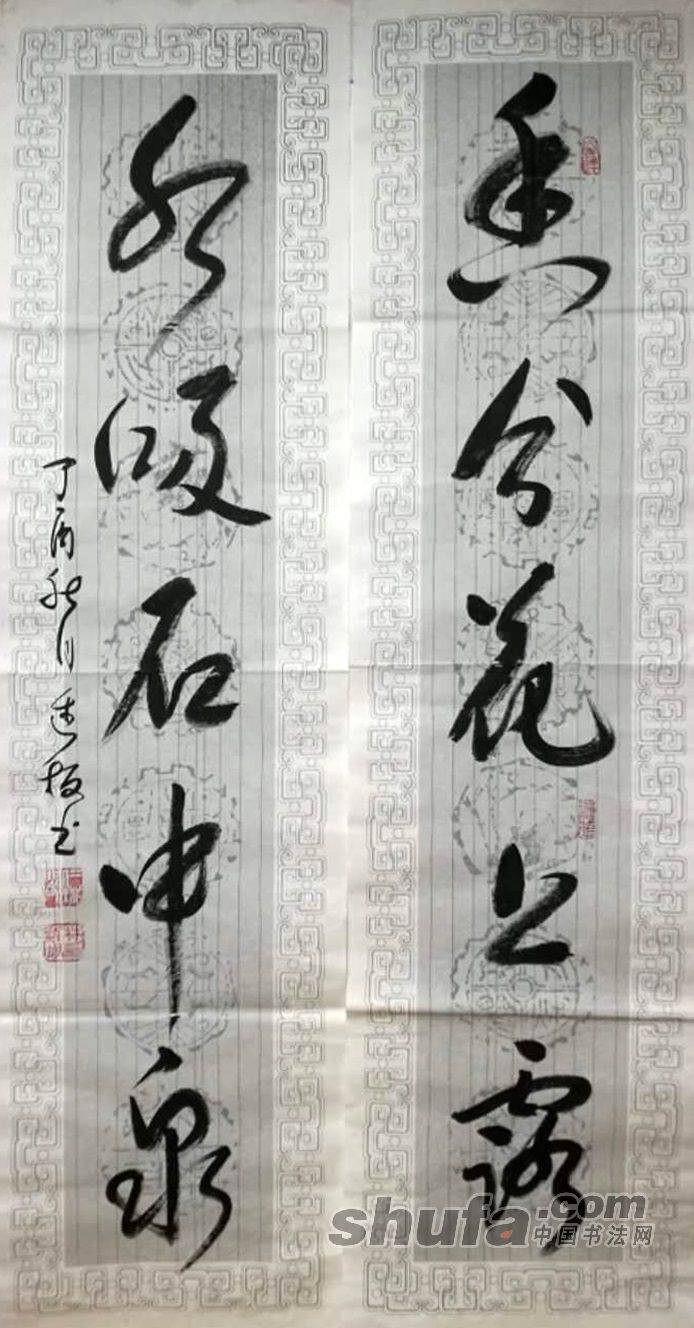 香分花上露
水吸石中泉
丁酉秋月书
shufa.com
中国书法网